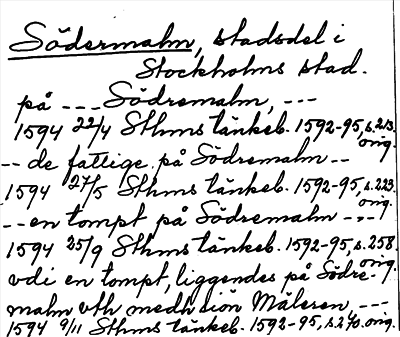 Södermalm, stadsdel i
Stockholms stad.
på --- Södremalm, ---
1594 22/4 Sthms tänkeb. 1592-95, s. 213. orig.
-- de fattige på Södremalm --
1594 27/5 Sthms tänkeb. 1592-95, s. 223. orig.
-- en tompt på Södremalm ---
1594 25/9 Sthms tänkeb. 1592-95, s. 258. orig.
vdi en tompt, liggendes på Södre-
malm vth medh siön Mäleren, ---
1594 9/11 Sthms tänkeb. 1592-95, s. 270. orig.